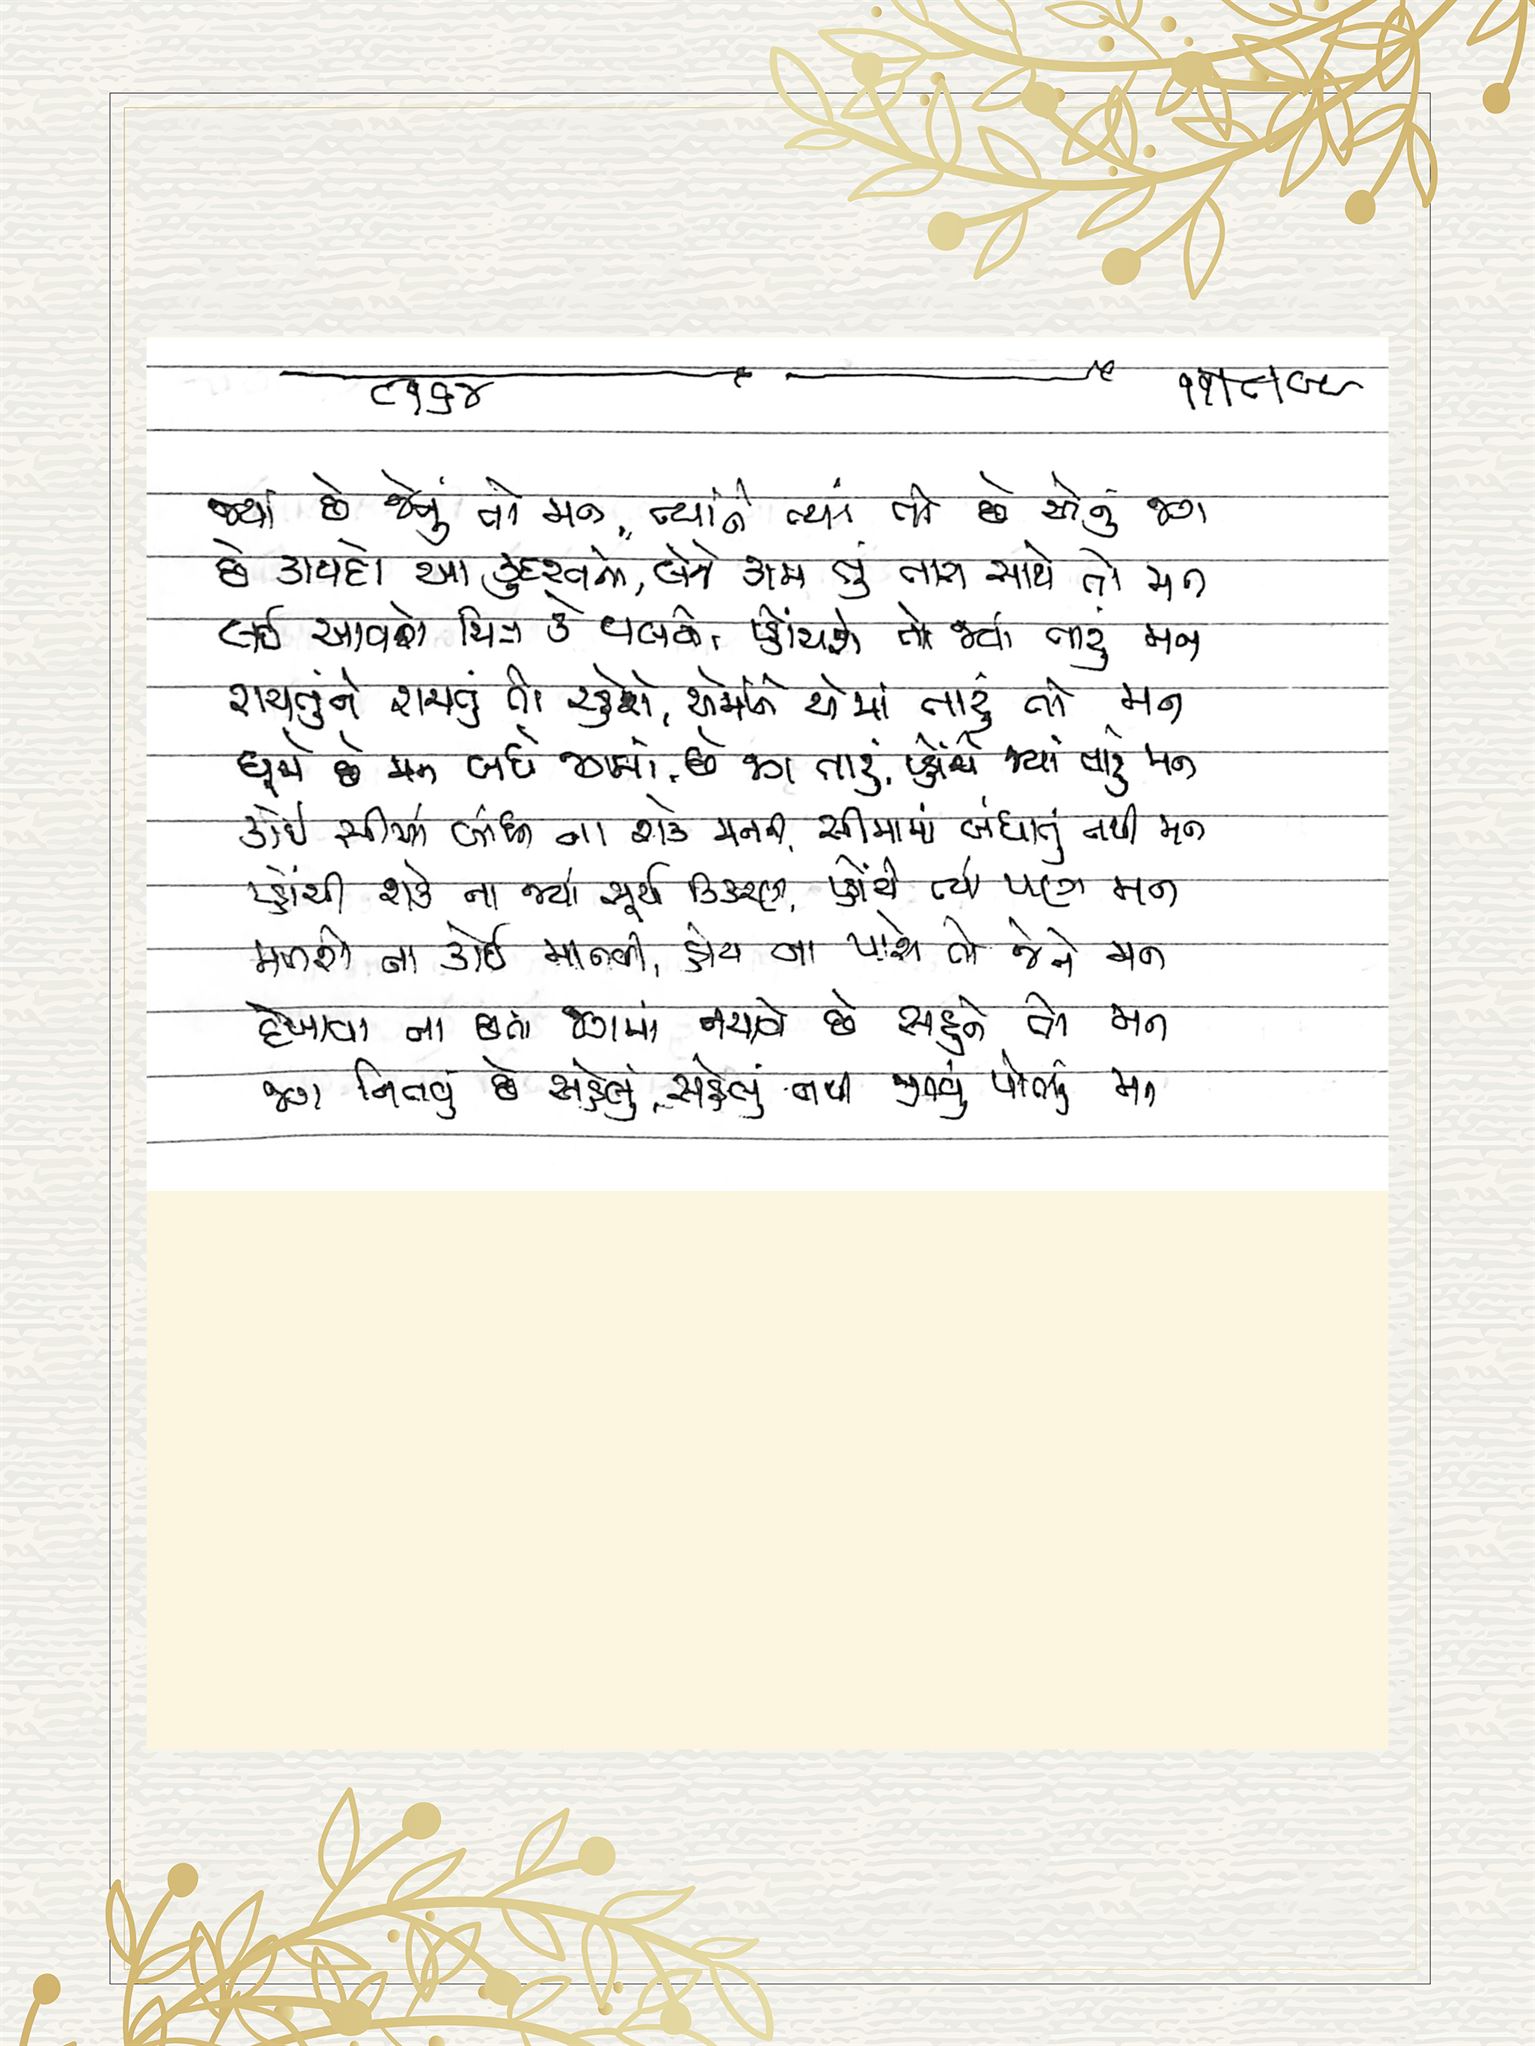 ૮૧૬૪ ૧૧।૮।૯૮
જ્યાં છે જેનું તો મન, ત્યાંને ત્યાં તો છે એનું જગ
છે કાયદો આ કુદરતનો, લેજે સમજી તું તારા સાથે તો મન
લઈ આવશે ચિત્ર કે ઝલક, પ્હોંચશે તો જ્યાં તારું મન
રાચતુંને રાચતું તો રહેશે, એમાંને એમાં તારું તો મન
ઘૂમે છે મન બધે જગમાં, છે જગ તારું, પ્હોંચે જ્યાં તારું મન
કોઈ સીમા બાંધી ના શકે મનને, સીમામાં બંધાતું નથી મન
પ્હોંચી શકે ના જ્યાં સૂર્ય કિરણ, પ્હોંચે ત્યાં પણ મન
મળશે ના કોઈ માનવી, હોય ના પાસે તો જેને મન
દેખાતા ના છતાં જગમાં નચાવે છે સહુને તો મન
જગ જિતવું છે સહેલું, સહેલું નથી જીતવું પોતાનું મન